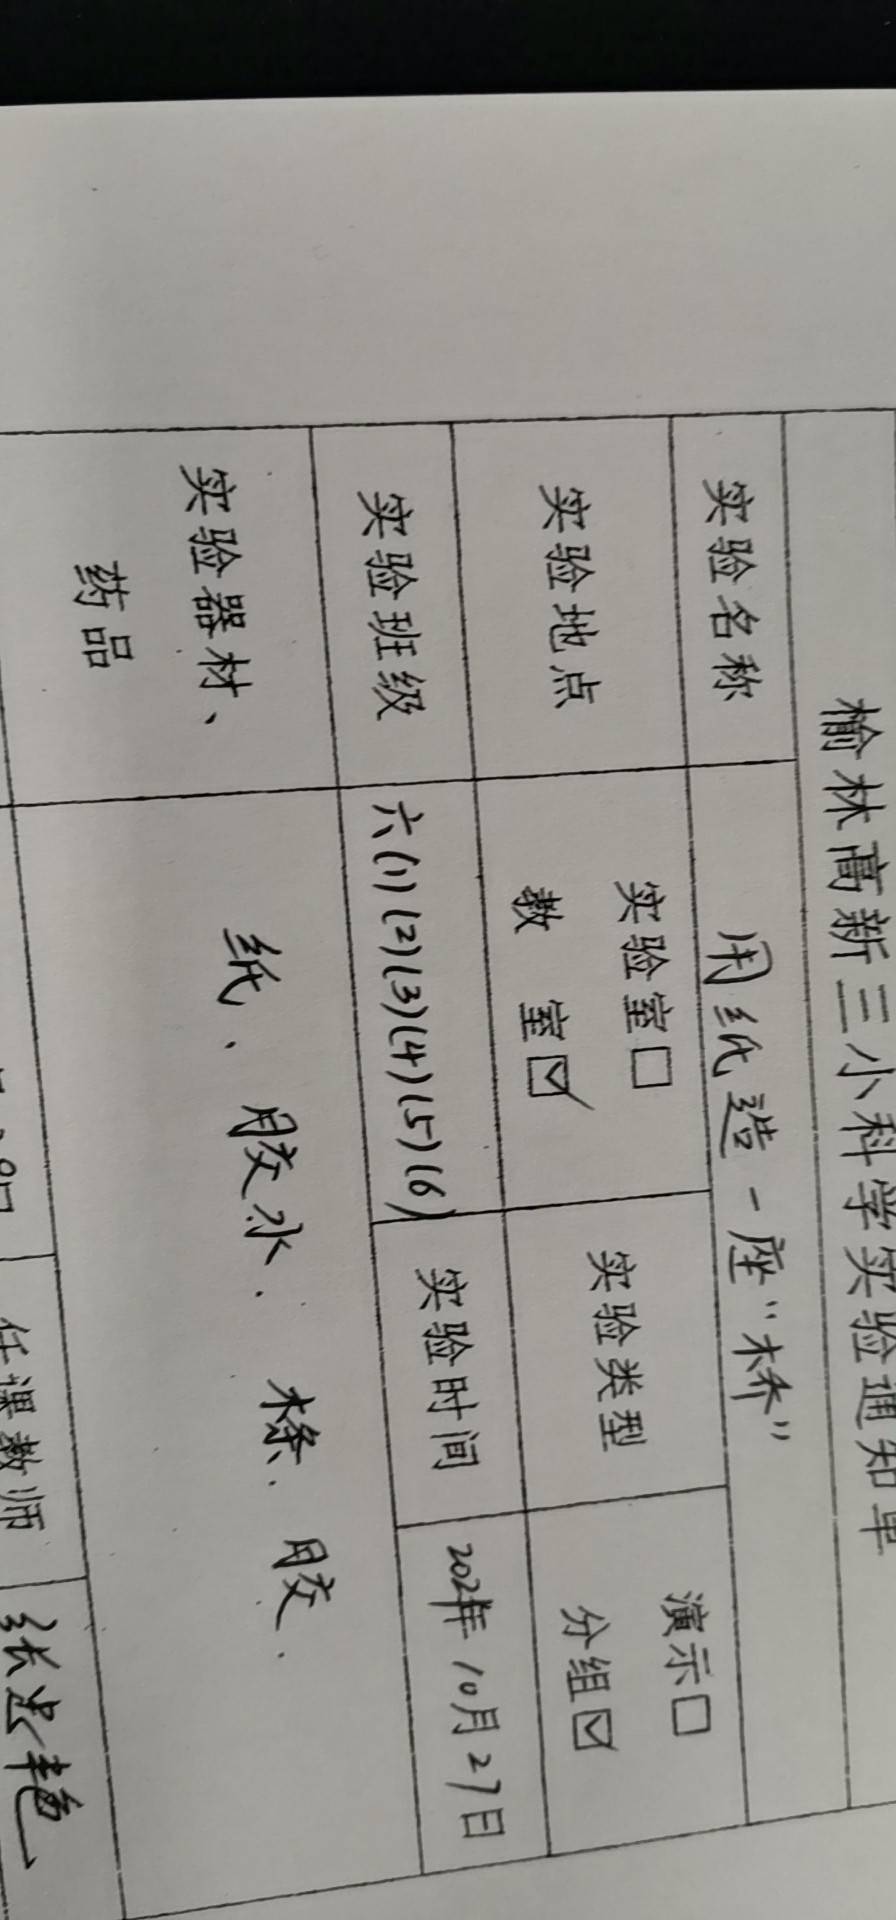 榆林高新三小科学实验通知单
实验名称 用纸造一座“桥”
实验地点 实验室□ 教 室☑ 实验类型 演示□ 分组☑
实验班级 六(1)(2)(3)(4)(5)(6) 实验时间 202年10月27日
实验器材、药品 纸、胶水. 胶.
任课教师 张